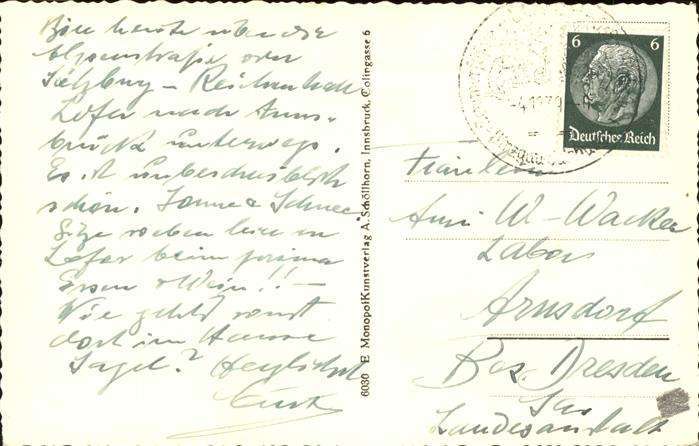 Bin heute über die
Alpenstraße von
Salzburg – Reichenhall
Lofer nach Inns-
bruck unterwegs.
Es ist unbeschreiblich
schön. Sonne & Schnee
Sitze soeben hier in
Lofer beim prima
Essen & Wein!! –
Wie geht's sonst
dort im Hause
Herzlichst
Kurt
6030 E MonopolKunstverlag A. Schöllhorn, Innsbruck, Colingasse 6
6 6
Deutsches Reich
Fräulein
Anni W-Wacker
Labor
Arnsdorf
Bez. Dresden
Landesanstalt